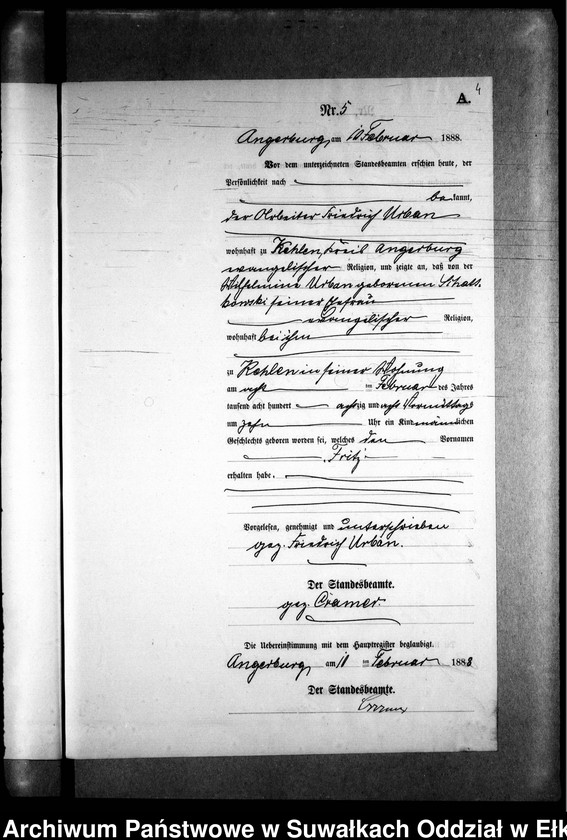 4
A.
Nr. 5
Angerburg, am 10 Februar 1888.
Vor dem unterzeichneten Standesbeamten erschien heute, der
Persönlichkeit nach
bekannt,
der Arbeiter Friedrich Urban
wohnhaft zu Kehlen, Kreis Angerburg
evangelischer Religion, und zeigte an, daß von der
Wilhelmine Urban geborenen Schatt-
kowski seiner Ehefrau
evangelischer Religion,
wohnhaft bei ihm
zu Kehlen in seiner Wohnung
am acht ten Februar des Jahres
tausend acht hundert achtzig und acht Vormittags
um zehn Uhr ein Kind männlichen
Geschlechts geboren worden sei, welches den Vornamen
Fritz
erhalten habe.
Vorgelesen, genehmigt und unterschrieben
gez. Friedrich Urban.
Der Standesbeamte.
gez. Cramer.
Die Uebereinstimmung mit dem Hauptregister beglaubigt.
Angerburg, am 11 ten Februar 1888
Der Standesbeamte.
Archiwum Państwowe w Suwałkach Oddział w Ełk